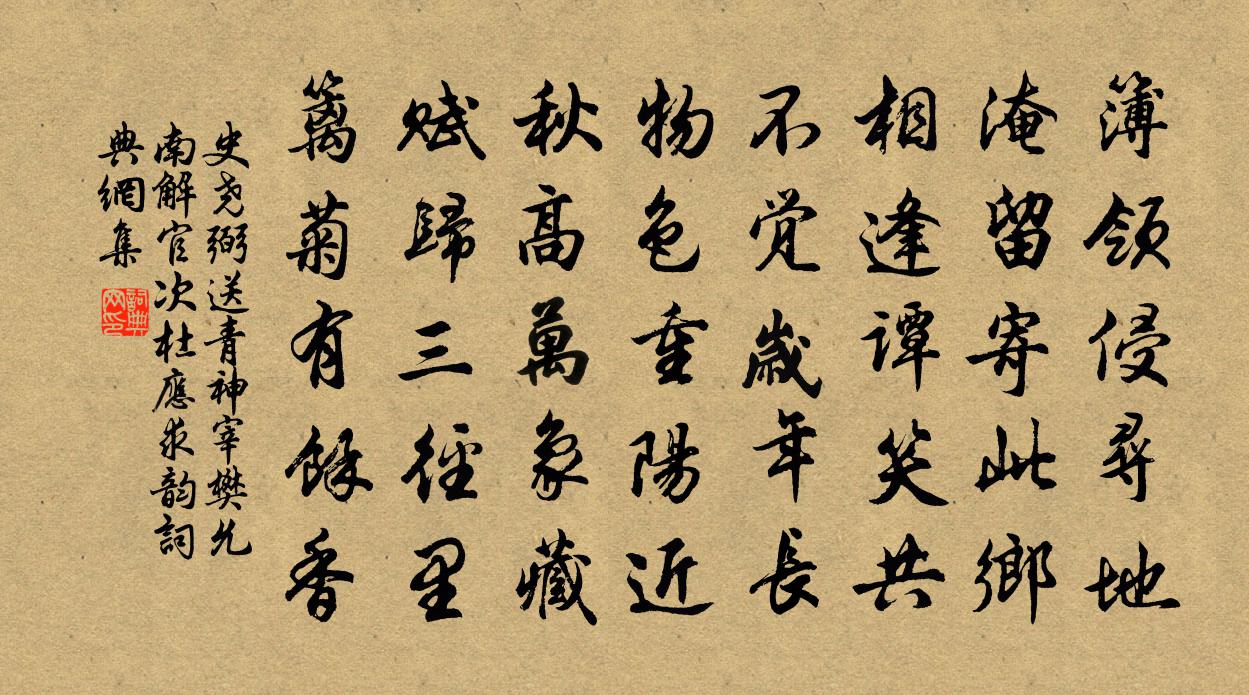 簿領侵尋地
淹留寄此鄉
相逢譚笑共
不覺歲年長
物色重陽近
秋高萬象藏
賦歸三徑里
籬菊有餘香
史堯弼送青神宰樊允
南解官次杜應求韵詞
典網集
詞典网印